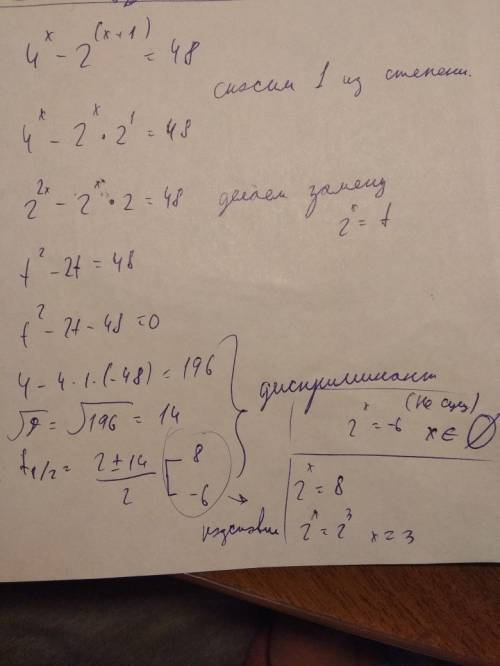 4^x - 2^(x+1) = 48
сносим 1 из степени.
4^x - 2^x · 2^1 = 48
2^2x - 2^x · 2 = 48 делаем замену
2^x = t
t^2 - 2t = 48
t^2 - 2t - 48 = 0
4 - 4 · 1 · (-48) = 196
√D = √196 = 14
t1/2 = 2 ± 14 / 2 [ 8
-6
дискриминант
2^x = -6 x ∈ ∅
2^x = 8
2^x = 2^3 x = 3